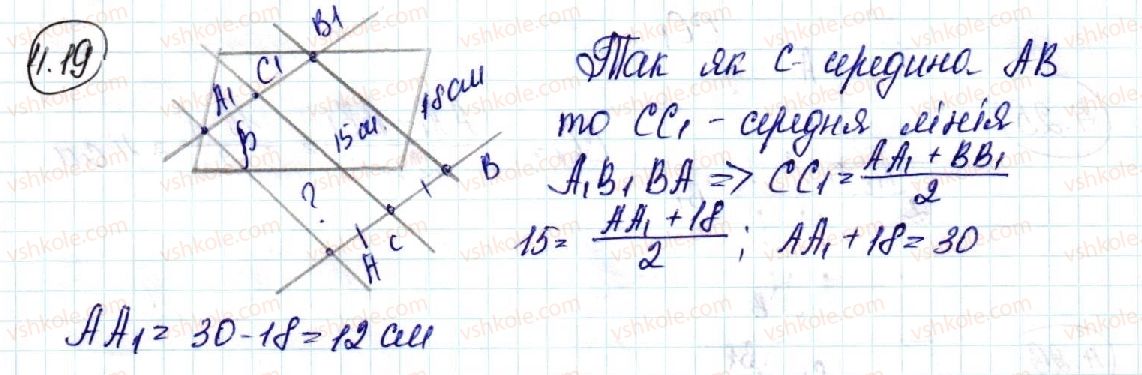 4.19
B1
C1
A1
β
15см.
18см
B
?
C
A
Так як C - середина AB
то CC₁ - середня лінія
A₁B₁BA => CC₁ = (AA₁ + BB₁)/2
15 = (AA₁ + 18)/2 ; AA₁ + 18 = 30
AA₁ = 30 - 18 = 12 см
vshkole.com